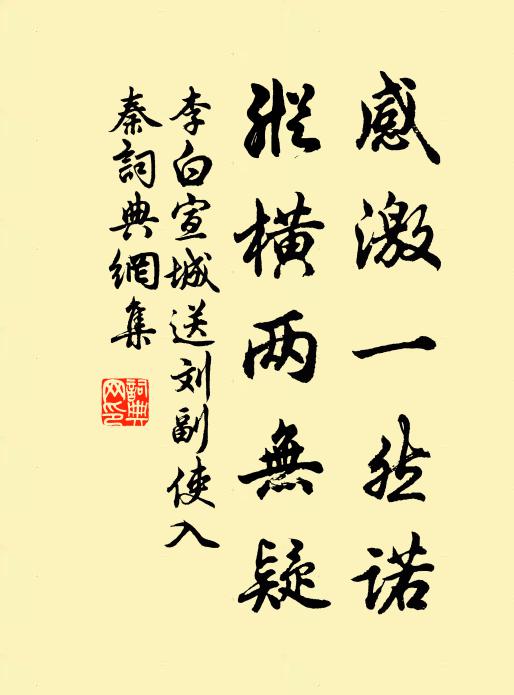 感激一然诺
縱橫两無疑
李白宣城送刘副使入
秦詞典網集
詞典网印